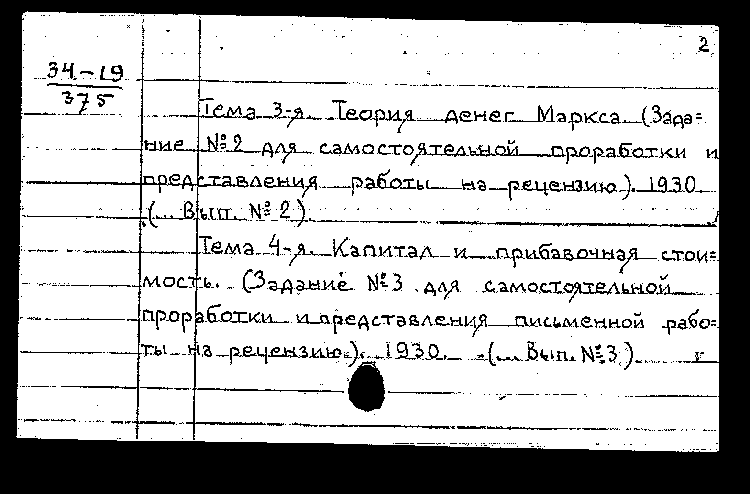 2
34-19
375
Тема 3-я. Теория денег Маркса. (Зада=
ние №2 для самостоятельной проработки и
представления работы на рецензию). 1930.
(... Вып. №2).
Тема 4-я. Капитал и прибавочная стои=
мость. (Задание №3 для самостоятельной
проработки и представления письменной рабо=
ты на рецензию.). 1930. (... Вып. №3).